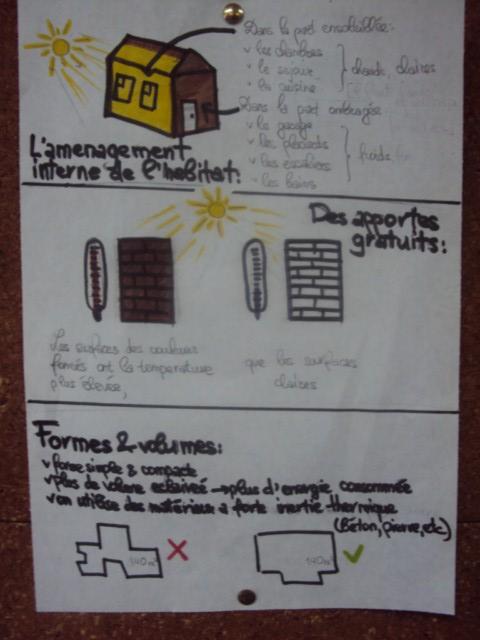 Dans la part ensoleillée:
v les chambres
v le sejour
v la cuisine
chauds, claires
Dans la part ombragée
v le garage
v les placards
v les escaliers
v les bains
froids,
L'amenagement
interne de l'habitat:
Des apportes
gratuits:
Les surfaces des couleurs
ont la temperature
plus élever,
que les surfaces
claires
Formes & volumes:
v forme simple & compacte
v plus de volume eclaireé → plus d'energie consommée
v on utilise des matériaux a forte inertie thermique
(Béton, pierre, etc)
140m²
140m²